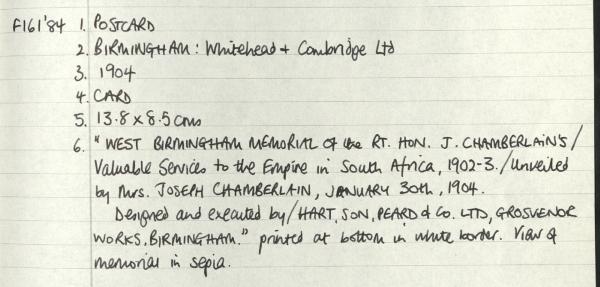 F161'84 1. POSTCARD
2. BIRMINGHAM: Whitehead + Cambridge Ltd
3. 1904
4. CARD
5. 13.8 x 8.5 cms
6. "WEST BIRMINGHAM MEMORIAL OF the RT. HON. J. CHAMBERLAIN'S/
Valuable Services to the Empire in South Africa, 1902-3./Unveiled
by Mrs. JOSEPH CHAMBERLAIN, JANUARY 30th, 1904.
Designed and executed by/HART, SON, PEARD & Co. LTD, GROSVENOR
WORKS, BIRMINGHAM." printed at bottom in white border. View of
memorial in sepia.